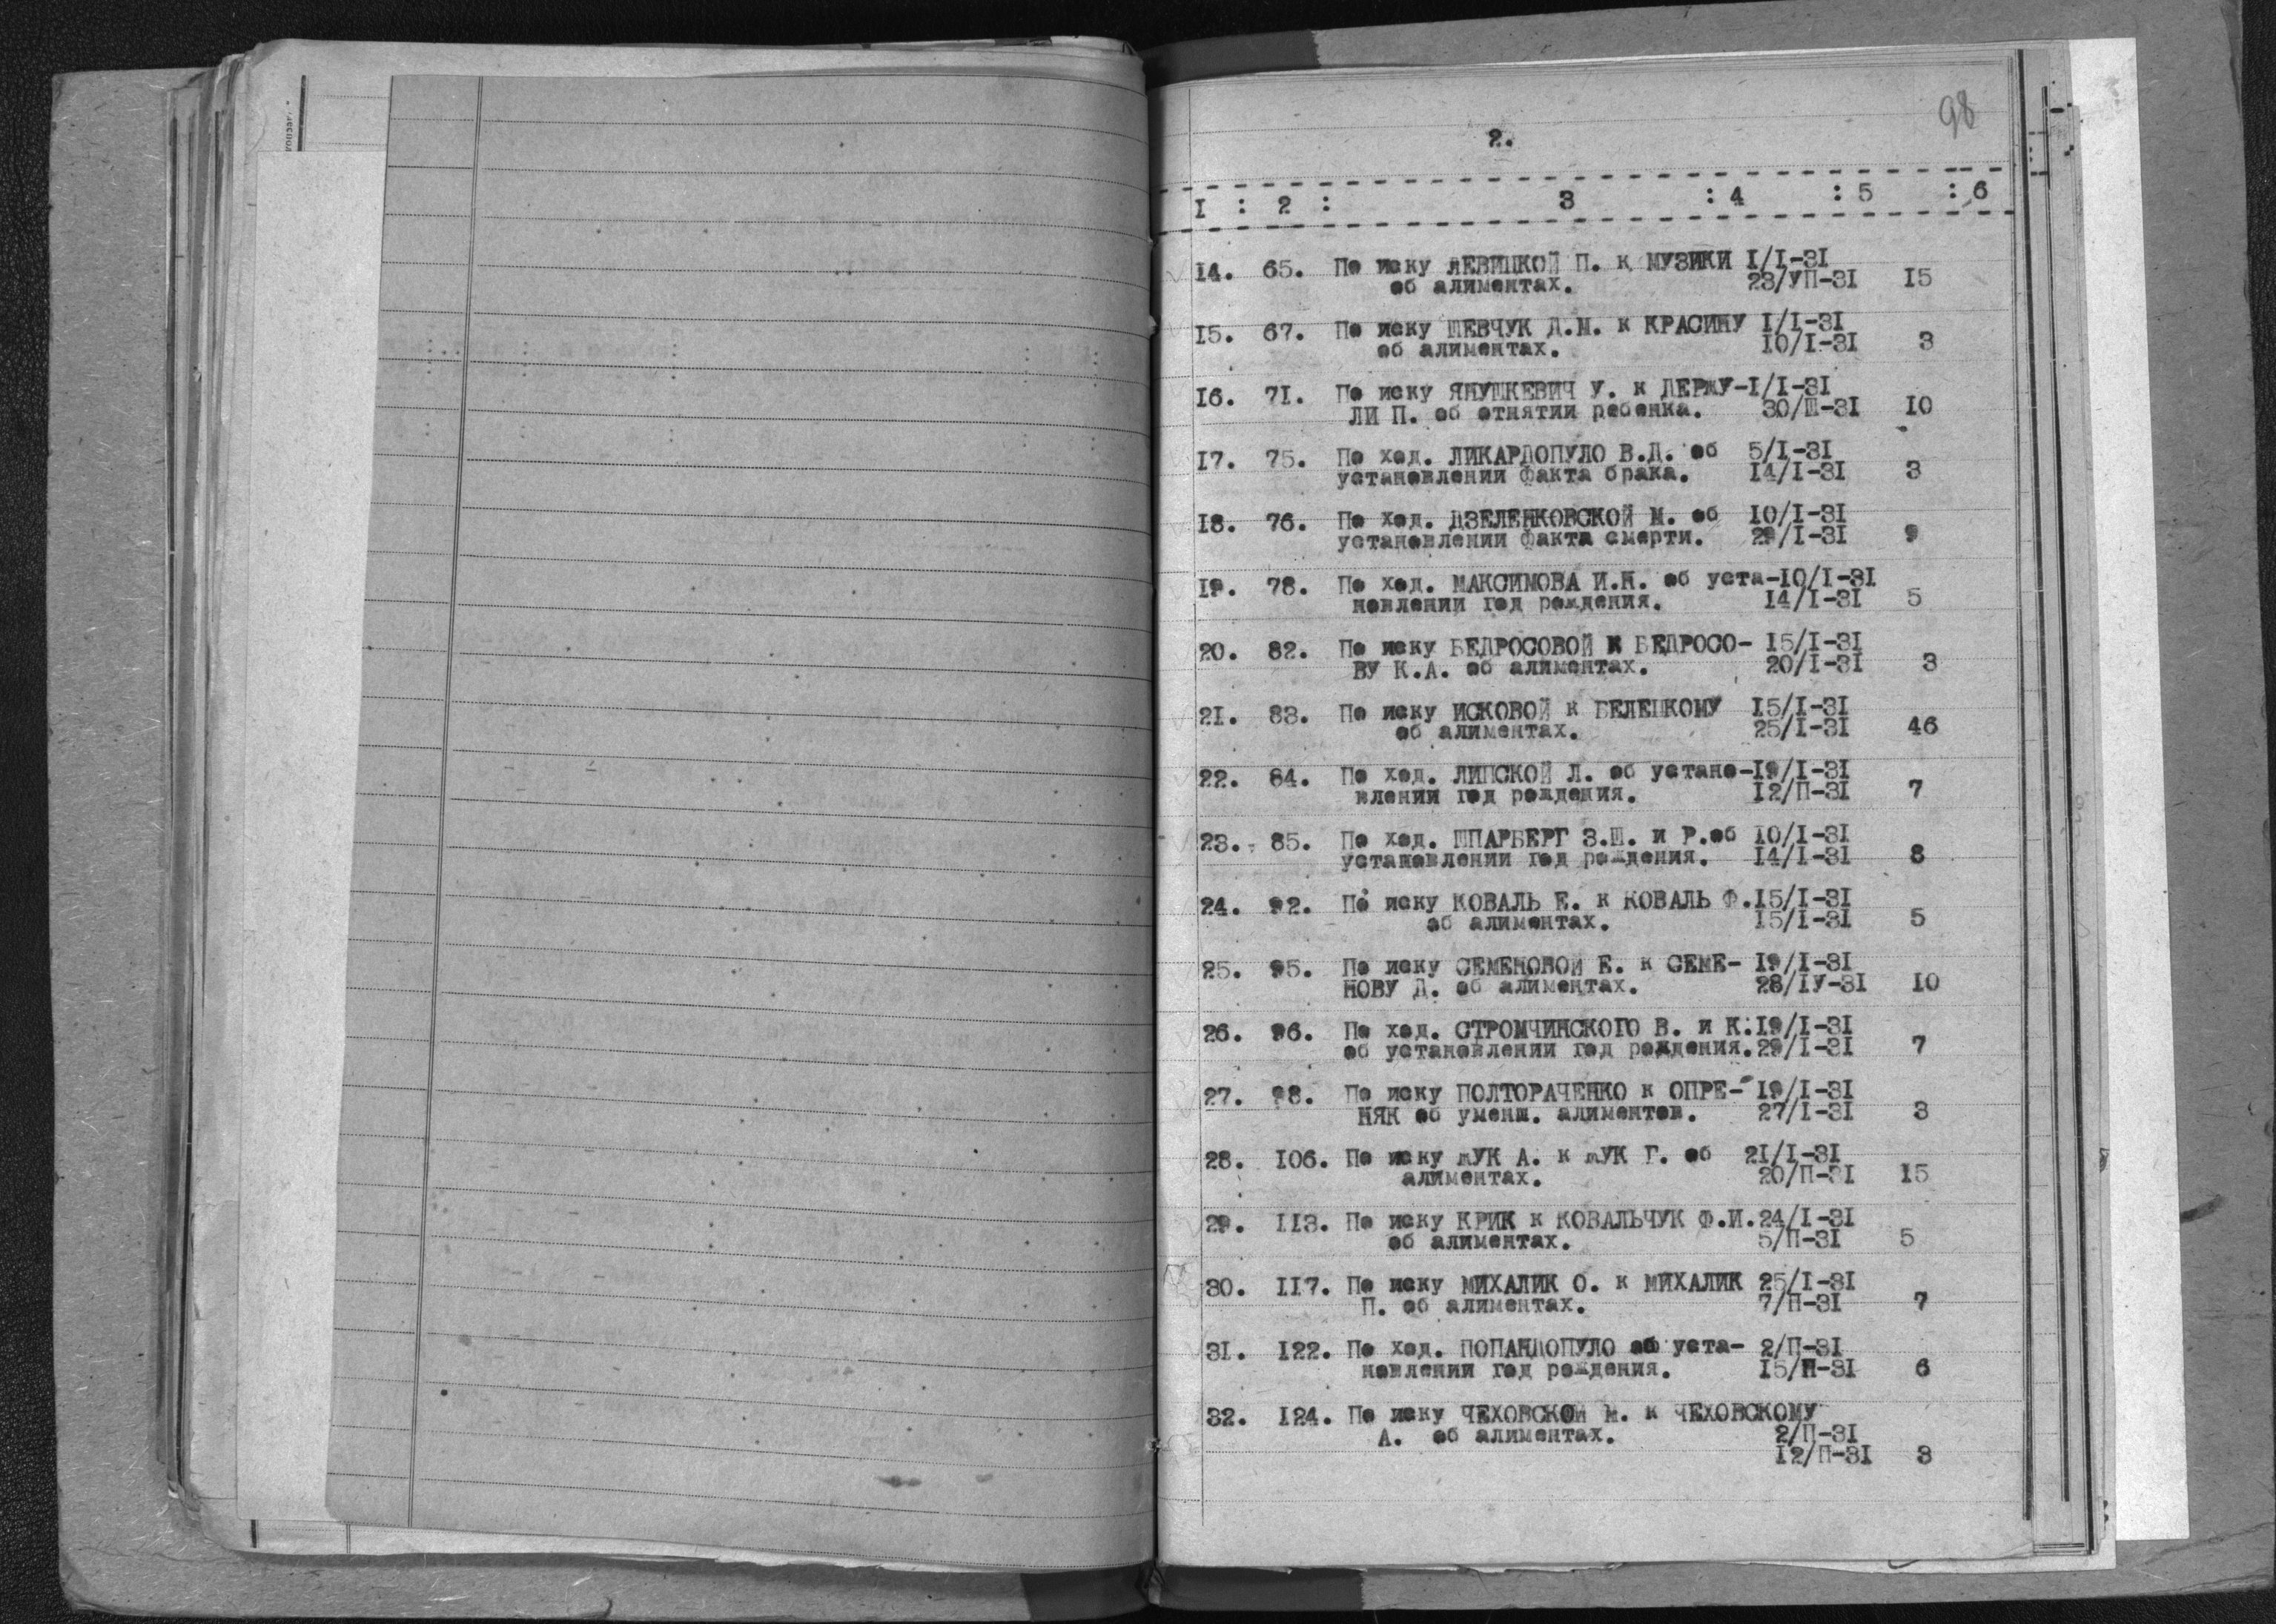 98
2.
I : 2 : 3 : 4 : 5 : 6
14. 65. По иску ЛЕВИЦКОЙ П. к МУЗИКИ I/I-3I
об алиментах. 23/УП-3I 15
15. 67. По иску ШЕВЧУК Д.М. к КРАСИНУ I/I-3I
об алиментах. 10/I-3I 3
16. 71. По иску ЯНУШКЕВИЧ У. к ДЕРЖУ-I/I-3I
ЛИ П. об отнятии ребенка. 30/Ш-3I 10
17. 75. По ход. ЛИКАРДОПУЛО В.Д. об 5/I-3I
установлении факта брака. 14/I-3I 3
18. 76. По ход. ДЗЕЛЕНКОВСКОЙ М. об 10/I-3I
установлении факта смерти. 29/I-3I 9
19. 78. По ход. МАКСИМОВА И.Н. об уста-10/I-3I
новлении год рождения. 14/I-3I 5
20. 82. По иску БЕДРОСОВОЙ к БЕДРОСО- 15/I-3I
ВУ К.А. об алиментах. 20/I-3I 3
21. 83. По иску ИСКОВОЙ к БЕЛЕЦКОМУ 15/I-3I
об алиментах. 25/I-3I 46
22. 84. По ход. ЛИПСКОЙ Л. об устано-19/I-3I
влении год рождения. 12/П-3I 7
23. 85. По ход. ШПАРБЕРГ З.Ш. и Р.об 10/I-3I
установлении год рождения. 14/I-3I 8
24. 92. По иску КОВАЛЬ Е. к КОВАЛЬ Ф.15/I-3I
об алиментах. 15/I-3I 5
25. 95. По иску СЕМЕНОВОЙ Е. к СЕМЕ- 19/I-3I
НОВУ Д. об алиментах. 28/IУ-3I 10
26. 96. По ход. СТРОМЧИНСКОГО В. и К.19/I-3I
об установлении год рождения.29/I-3I 7
27. 98. По иску ПОЛТОРАЧЕНКО к ОПРЕ- 19/I-3I
НЯК об уменш. алиментов. 27/I-3I 3
28. 106. По иску ЖУК А. к ЖУК Г. об 21/I-3I
алиментах. 20/П-3I 15
29. 113. По иску КРИК к КОВАЛЬЧУК Ф.И.24/I-3I
об алиментах. 5/П-3I 5
30. 117. По иску МИХАЛИК О. к МИХАЛИК 25/I-3I
П. об алиментах. 7/П-3I 7
31. 122. По ход. ПОПАНДОПУЛО об уста- 2/П-3I
новлении год рождения. 15/П-3I 6
32. 124. По иску ЧЕХОВСКОЙ М. к ЧЕХОВСКОМУ
А. об алиментах. 2/П-3I
12/П-3I 3